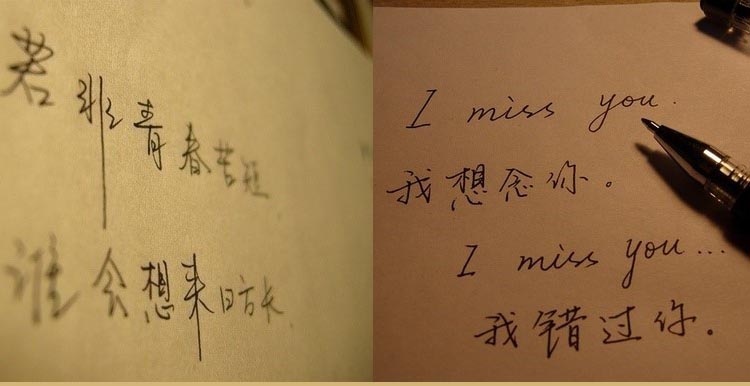 若非青春苦短
谁会想来日方长
I miss you.
我想念你。
I miss you...
我错过你。